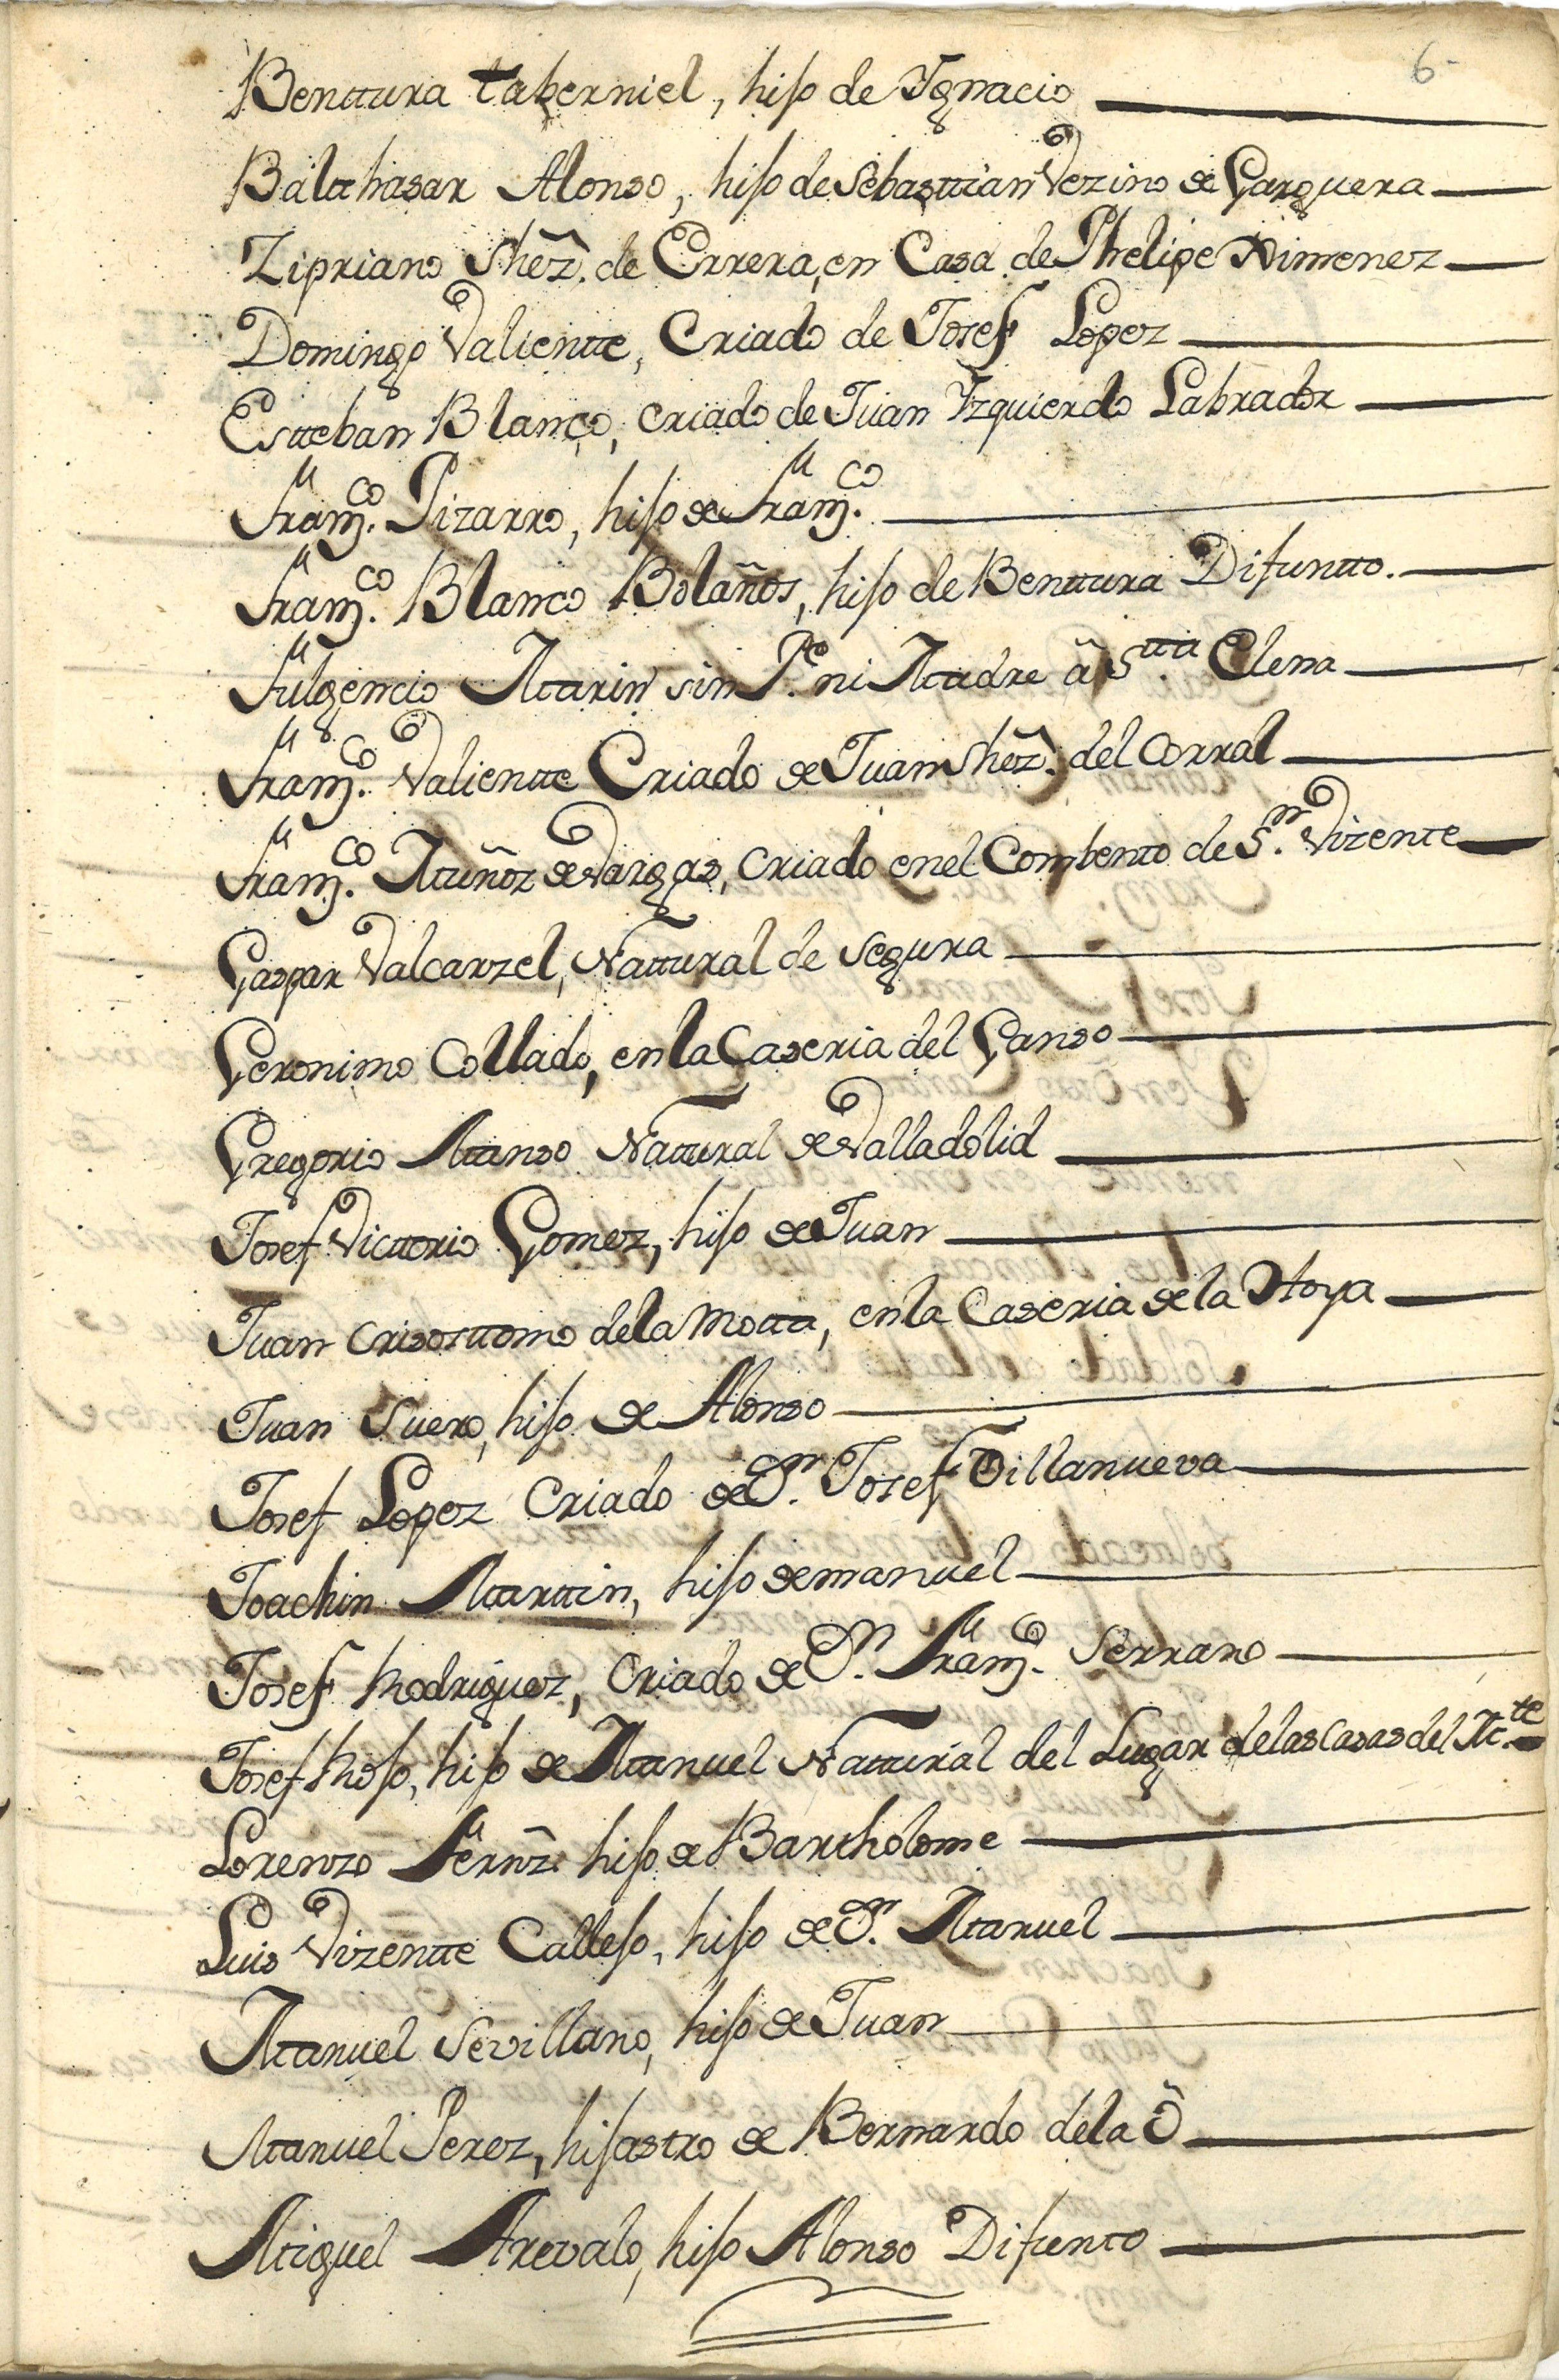 6-
Benttura taberniel, hijo de Ygnacio
Balthasar Alonso, hijo de Sebasttian Vezino de Garguera
Zipriano Shẽz. de Errera, en Casa de Phelipe Ximenez
Domingo Valientte, Criado de Josef Lopez
Estteban Blanco, criado de Juan Yzquierdo Labrador
Franco. Pizarro, hijo de Franco.
Franco. Blanco Bolaños, hijo de Benttura Difuntto.
Fulgencio Marin sin Pe. ni Madre â Stta Elena
Franco. Valientte Criado de Juan Shẽz. del Corral
Franco. Muñoz de Vargas, Criado en el Combento de Sn. Vizente
Gaspar Valcarzel, Nattural de Segura
Geronimo Collado, en la Caseria del Ganso
Gregorio Manso Nattural de Valladolid
Josef Victtorio Gomez, hijo de Juan
Juan Crisosttomo de la Motta, en la Caseria de la Hoya
Juan Suero, hijo de Alonso
Josef Lopez Criado de Dn. Josef Villanueva
Joachin Marttin, hijo de manuel
Josef Rodriguez, Criado de Dn. Franco. Serrano
Josef Rojo, hijo de Manuel Nattural del Lugar de las Casas del Mte.
Lorenzo Fernz̃. hijo de Bartholome
Luis Vizentte Callejo, hijo de Dn. Manuel
Manuel Sevillano, hijo de Juan
Manuel Perez, hijastro de Bernardo de la Õ
Miguel Arevalo, hijo Alonso Difunto